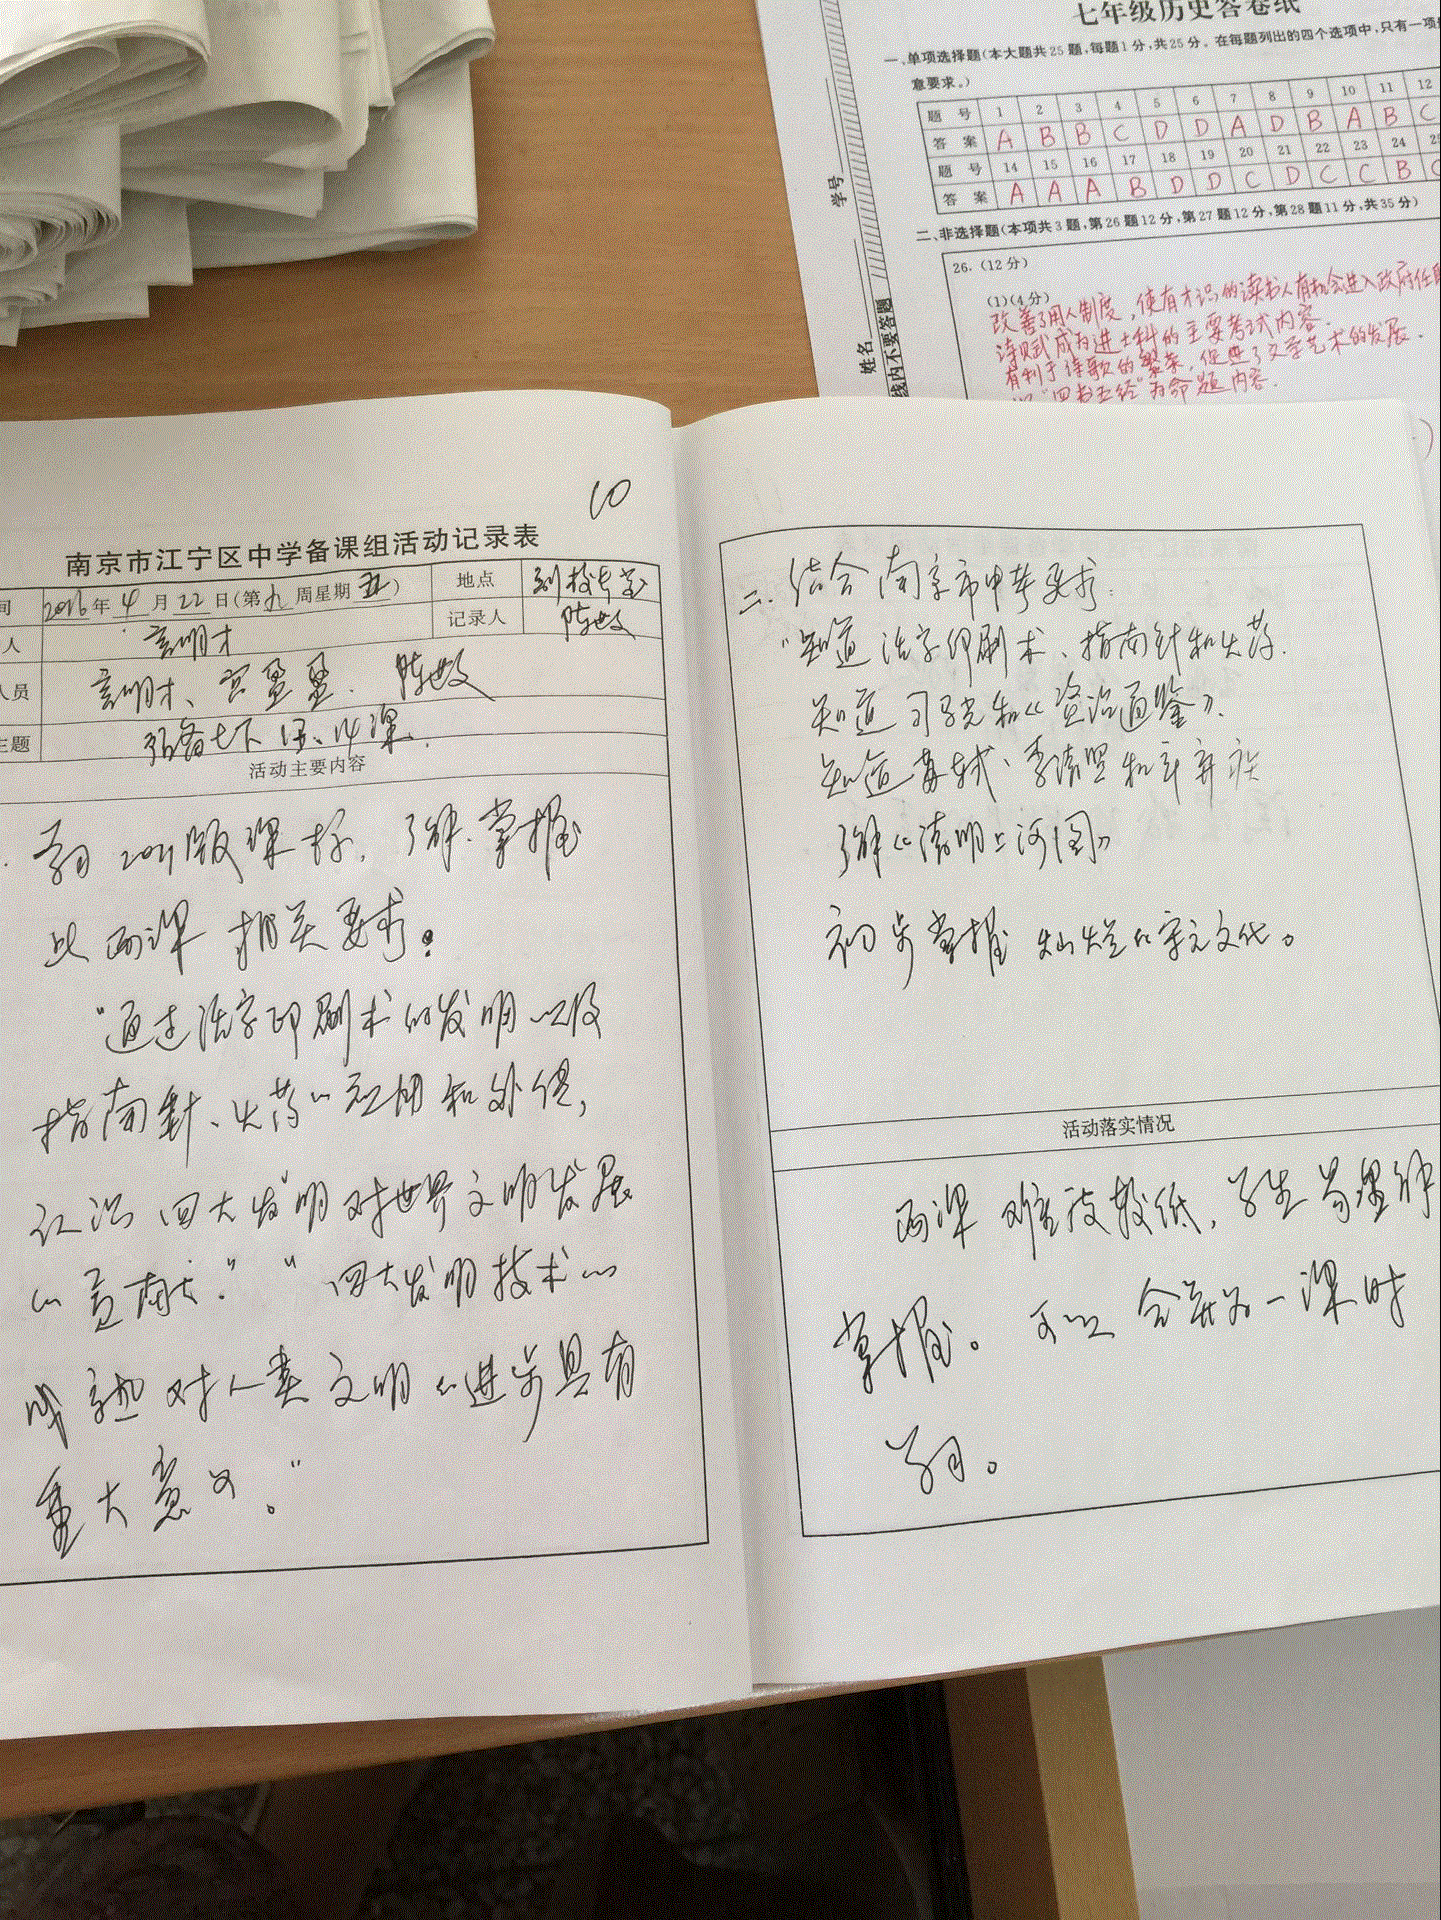 七年级历史答卷纸
一、单项选择题(本大题共25题,每题1分,共25分。在每题列出的四个选项中,只有一项
意要求。)
题 号 1 2 3 4 5 6 7 8 9 10 11 12
答 案 A B B C D D A D B A B C
题 号 14 15 16 17 18 19 20 21 22 23 24
答 案 A A A B D D C D C C B C
二、非选择题(本项共3题,第26题12分,第27题12分,第28题11分,共35分)
26.(12分)
(1)(4分)
改善了用人制度,使有才识的读书人有机会进入政府任职
诗赋成为进士科的主要考试内容.
有利于诗歌的繁荣,促进了文学艺术的发展.
"四书五经"为命题内容.
学号
姓名
线内不要答题
10
南京市江宁区中学备课组活动记录表
间 2016年4月22日(第九周星期五) 地点
人 明才 记录人 陈
人员 明才、宫盈盈、陈
主题 预备七下13、14课.
活动主要内容
学习2011版课标,了解、掌握
此两课相关要求。
"通过活字印刷术的发明以及
指南针、火药的应用和外传,
认识四大发明对世界文明发展
的贡献。""四大发明技术的
成熟对人类文明的进步具有
重大意义。"
二.结合南京市中考要求:
"知道活字印刷术、指南针和火药.
知道司马光和《资治通鉴》.
知道苏轼、李清照和辛弃疾
了解《清明上河图》
初步掌握灿烂的宋元文化。
活动落实情况
两课难度较低,学生易理解
掌握。可以合并为一课时
学习。